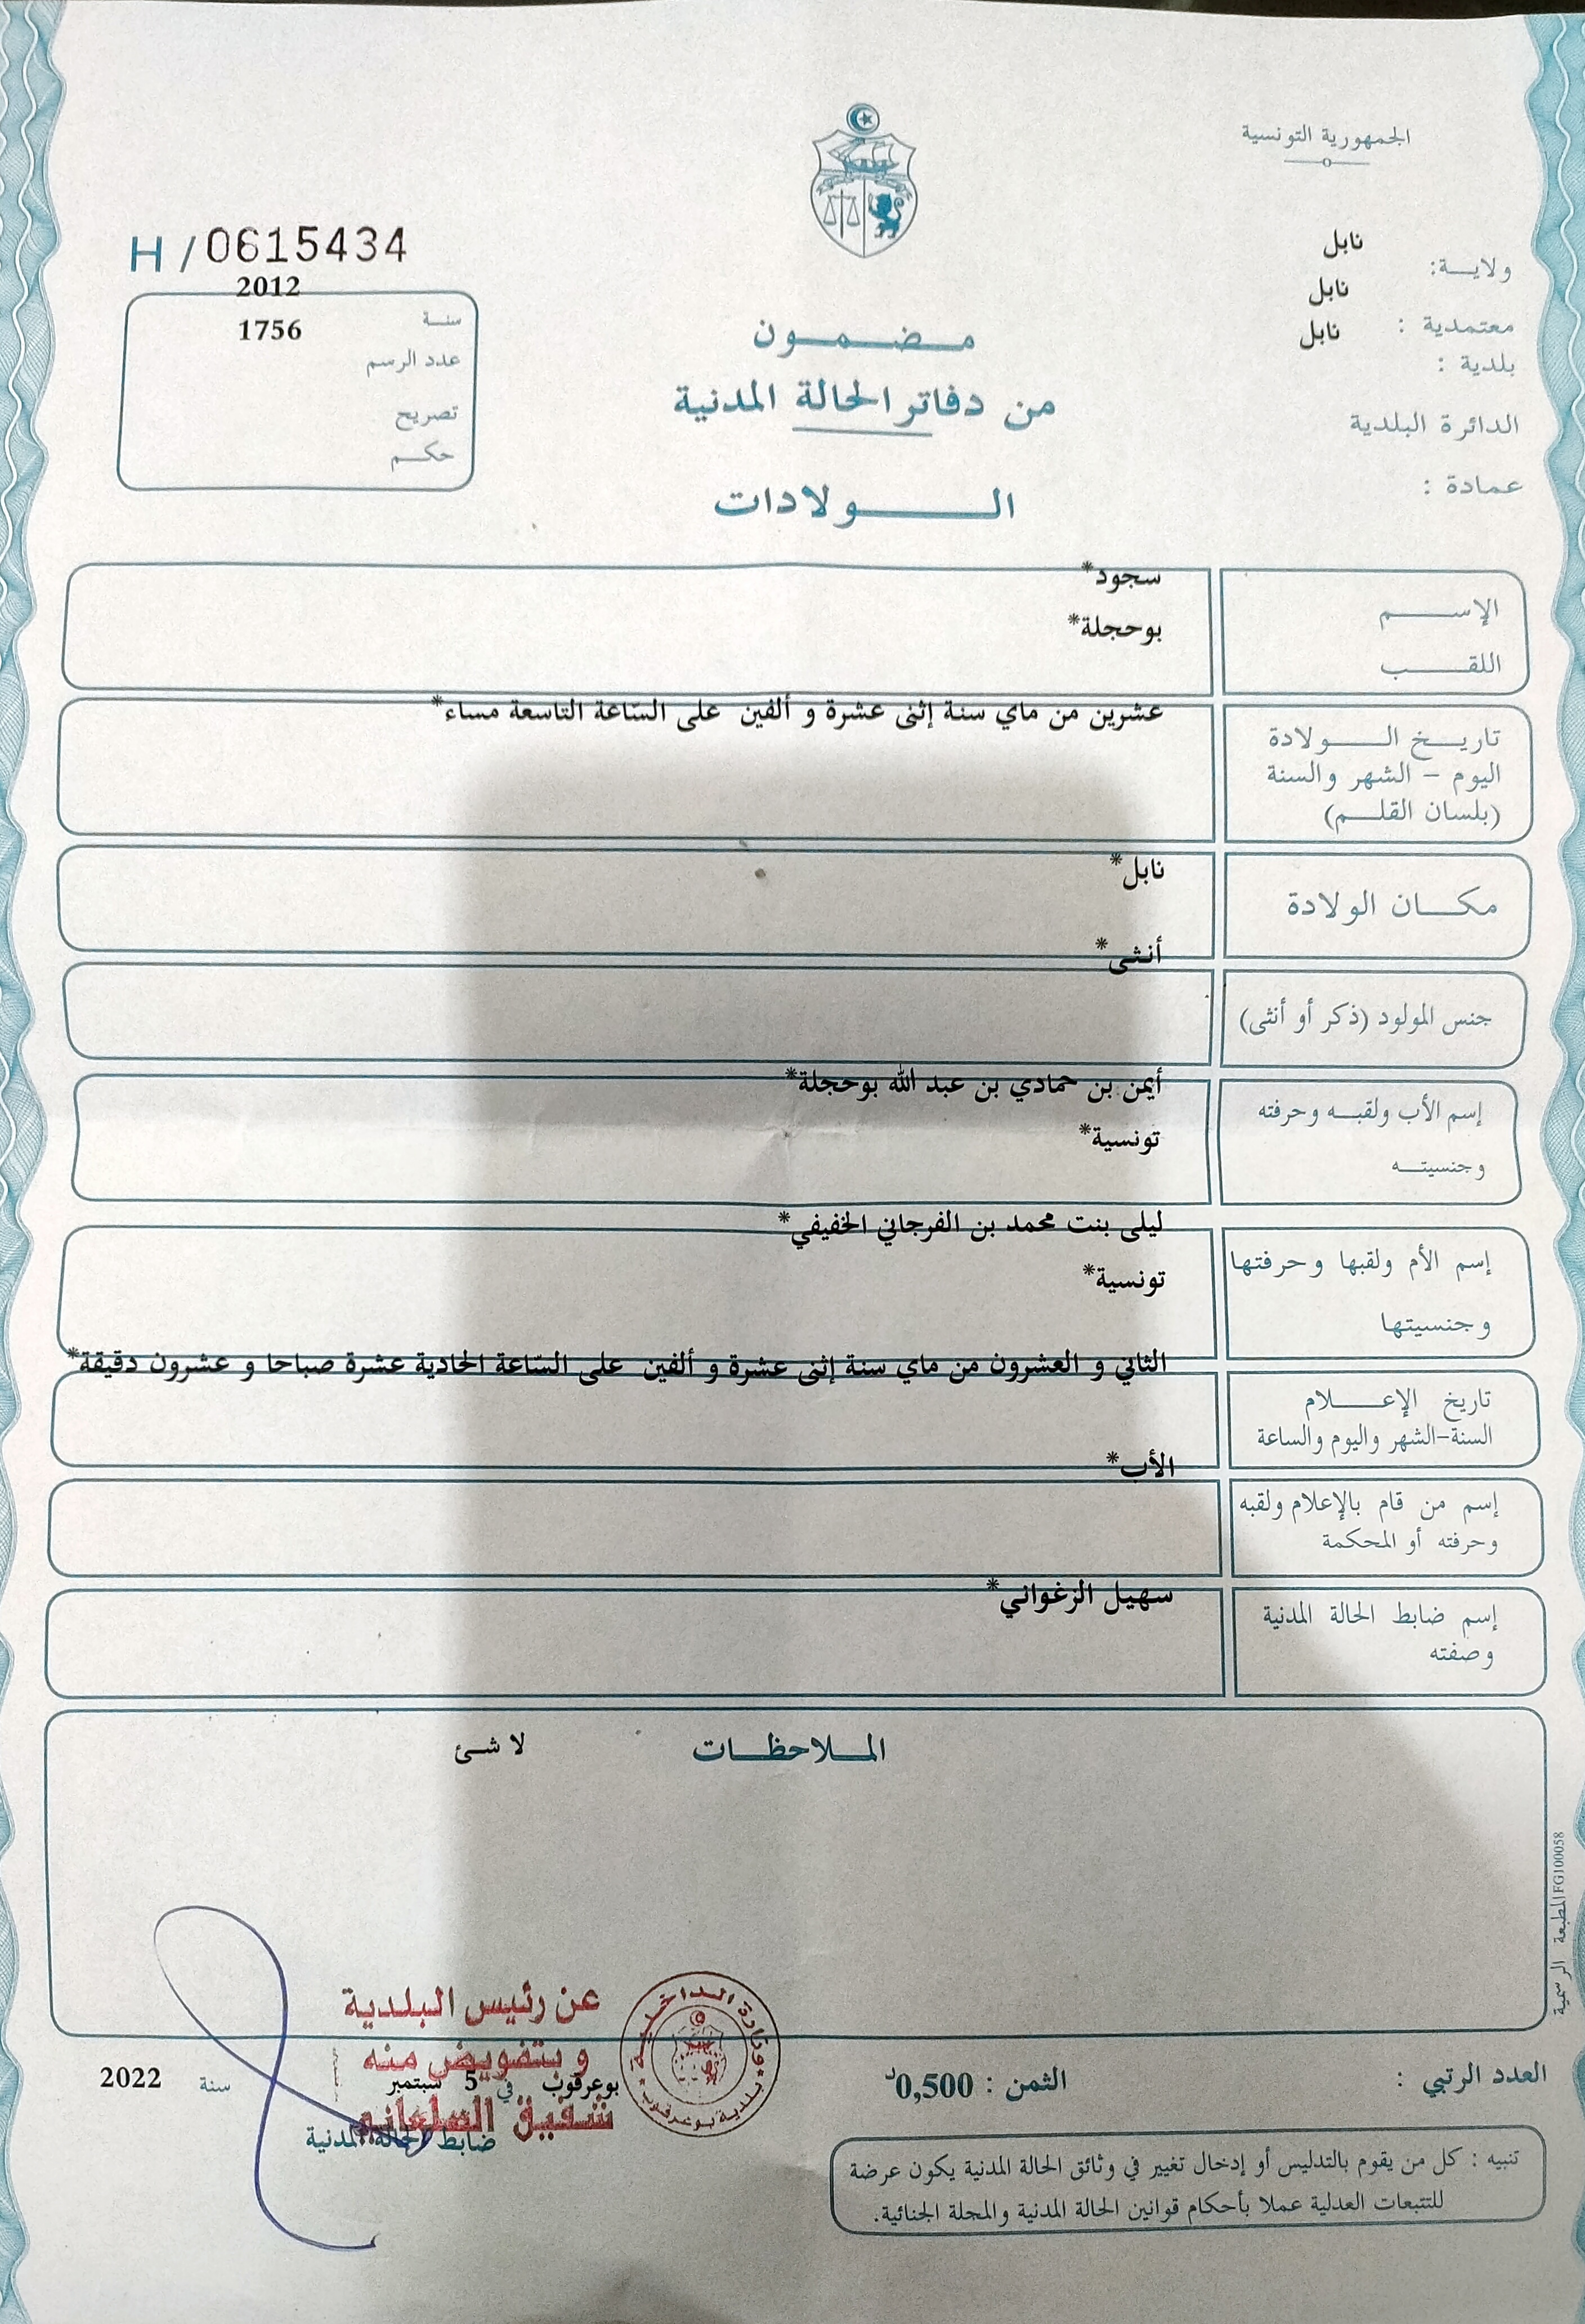 الجمهورية التونسية
ولايـــة: نابل
معتمدية : نابل
بلدية : نابل
الدائرة البلدية
عمادة :
H / 0615434
سنـة 2012
عدد الرسم 1756
تصريح
حكـم
مـضـمـون
من دفاتر الحالة المدنية
الـــولادات
الإســـم سجود*
اللقـــب بوحجلة*
تاريـخ الـــولادة
اليوم – الشهر والسنة
(بلسان القلـم)
عشرين من ماي سنة إثنى عشرة و ألفين على السّاعة التاسعة مساء*
مكـان الولادة
نابل*
جنس المولود (ذكر أو أنثى)
أنثى*
إسم الأب ولقبـه وحرفته
وجنسيتـه
أيمن بن حمادي بن عبد الله بوحجلة*
تونسية*
إسم الأم ولقبها وحرفتها
وجنسيتها
ليلى بنت محمد بن الفرجاني الخفيفي*
تونسية*
تاريخ الإعـــلام
السنة-الشهر واليوم والساعة
الثاني و العشرون من ماي سنة إثنى عشرة و ألفين على السّاعة الحادية عشرة صباحا و عشرون دقيقة*
إسم من قام بالإعلام ولقبه
وحرفته أو المحكمة
الأب*
إسم ضابط الحالة المدنية
وصفته
سهيل الزغواني*
المـلاحظـات
لا شئ
المطبعة الرسمية FG100058
العدد الرتبي :
الثمن : 0,500د
وزارة الداخلية
بلدية بوعرقوب
عن رئيس البلدية
و بتفويض منه
شفيق
بوعرقوب في 5 سبتمبر سنة 2022
ضابط الحالة المدنية
تنبيه : كل من يقوم بالتدليس أو إدخال تغيير في وثائق الحالة المدنية يكون عرضة
للتتبعات العدلية عملا بأحكام قوانين الحالة المدنية والمجلة الجنائية.